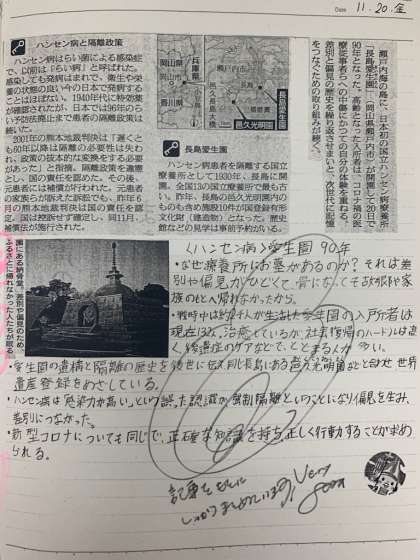 Date 11.20.金
ハンセン病と隔離政策
ハンセン病はらい菌による感染症
で、以前は「らい病」と呼ばれた。
感染しても発病はまれで、衛生や栄
養の状態の良い今の日本で発病する
ことはほぼない。1940年代に特効薬
が確認されたが、日本では96年のら
い予防法廃止まで患者の隔離政策は
続いた。
2001年の熊本地裁判決は「遅くと
も60年以降は隔離の必要性は失わ
れ、政策の抜本的な変換をする必要
があった」と指摘。隔離政策を違憲
とし、国の責任を認めた。その後、
元患者には補償が行われた。元患者
の家族らが訴えた訴訟でも、昨年6
月の熊本地裁判決は国の責任を認
定。国は控訴せず確定し、同11月、
補償法が施行された。
岡山県
兵庫県
岡山市
香川県
岡山県
瀬戸内市
邑久長島大橋
播磨灘
長島愛生園
邑久光明園
長島愛生園
ハンセン病患者を隔離する国立
療養所として1930年、長島に開
園。全国13の国立療養所で最も古
い。昨年、長島の邑久光明園内の
ものも含め施設10件が国登録有形
文化財(建造物)となった。歴史
館などの見学は事前予約がいる。
瀬戸内海の島に、日本初の国立ハンセン病療養所
「長島愛生園」(岡山県瀬戸内市)が開園して20日で
90年となった。高齢となった入所者は、コロナ禍の医
療従事者らへの中傷にかつての自分の体験を重ねる。
差別と偏見の歴史を繰り返させまいと、次世代に記憶
をつなぐための取り組みが続く。
園にある納骨堂。差別や偏見のため
ふるさとに帰れなかった人たちが眠る
〈ハンセン病〉愛生園 90年
・なぜ療養所にお墓があるのか? それは差
別や偏見がひどくて、骨になっても故郷や家
族のもとへ帰れなかったから。
・戦時中は約2千人が生活した愛生園の入所者は
現在132人。治癒しているが、社会復帰のハードルは高
く、後遺症のケアなどで、とどまる人が多い。
・愛生園の遺構と隔離の歴史を後世に伝え、同じ長島にある邑久光明園などと合わせ世界
遺産登録をめざしている。
・ハンセン病は「感染力が高い」という誤った認識が強制隔離ということになり偏見を生み、
差別につながった。
・新型コロナについても同じで、正確な知識を持ち正しく行動することが求め
られる。
記事をもとに
しっかりまとめています。Very
good